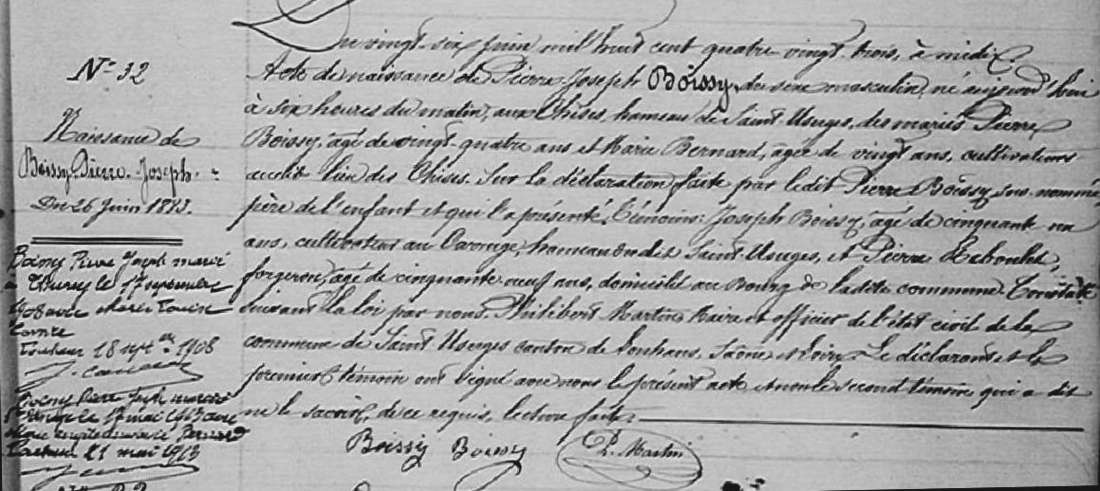 N° 32
Naissance de
Boissy Pierre-Joseph.
Du 26 Juin 1883.
Boissy Pierre Joseph marié
à le 17 septembre
1908 avec Marie
18 sept 1908
Boissy Pierre Joseph marié
le 17 mai 1913 avec
Bernard
21 mai 1913
Du vingt-six Juin mil huit cent quatre-vingt-trois, à midi.
Acte de naissance de Pierre Joseph Boissy, du sexe masculin, né aujourd'hui
à six heures du matin, aux Chises, hameau de Saint-Usuges, des mariés Pierre
Boissy, âgé de vingt-quatre ans et Marie Bernard, âgée de vingt ans, cultivateurs
audit lieu des Chises. Sur la déclaration faite par ledit Pierre Boissy, sus-nommé
père de l'enfant et qui l'a présenté. Témoins: Joseph Boissy, âgé de cinquante un
ans, cultivateur au hameau dudit Saint-Usuges, et Pierre Reboulet,
forgeron, âgé de cinquante neuf ans, domicilié au Bourg de ladite commune. Constaté
suivant la loi par nous, Philibert Martin Maire et officier de l'état civil de la
commune de Saint Usuges canton de Louhans, Saône et Loire. Le déclarant et le
premier témoin ont signé avec nous le présent acte, et non le second témoin, qui a dit
ne le savoir, de ce requis, lecture faite.
Boissy Boissy P. Martin